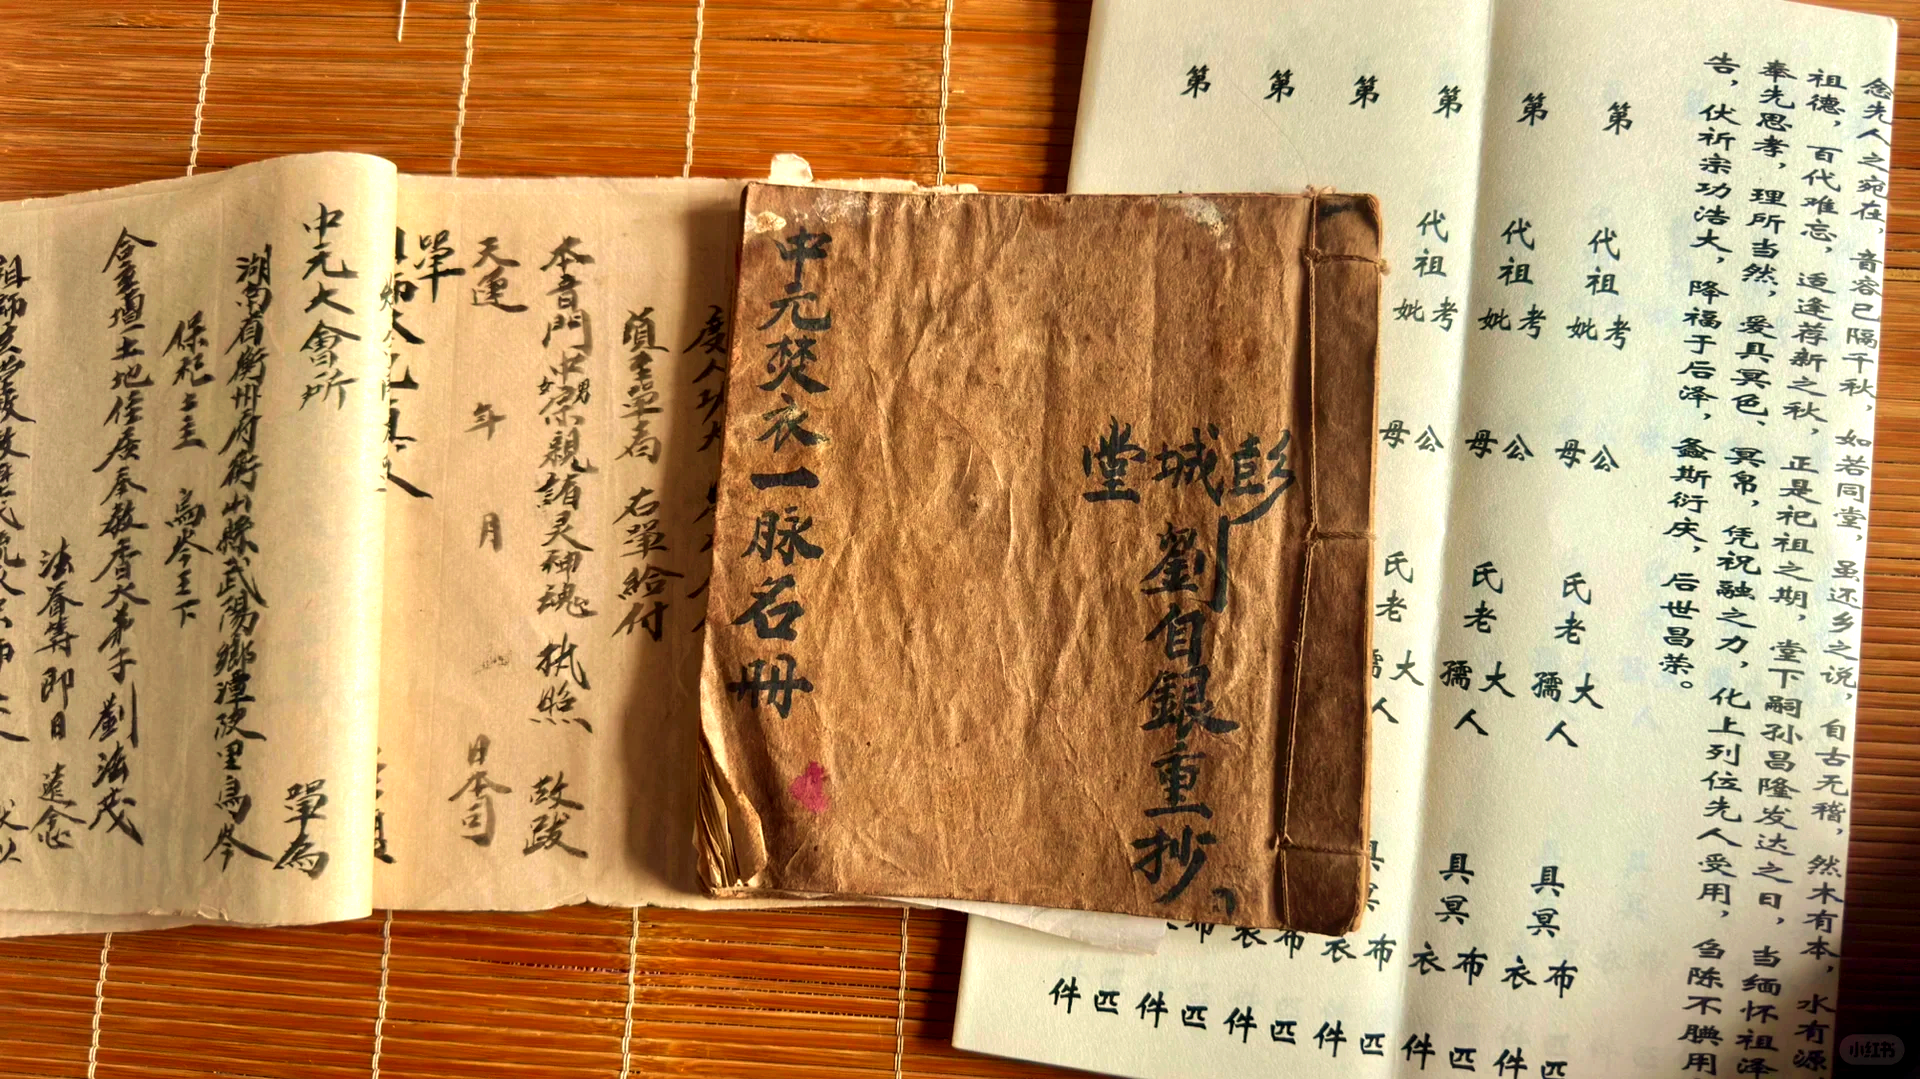 念先人之宛在，音容已隔千秋，如若同堂，虽还乡之说，自古无稽，然木有本，水有源
祖德，百代难忘，适逢荐新之秋，正是祀祖之期，堂下嗣孙昌隆发达之日，当缅怀祖泽
奉先思孝，理所当然，爰具冥色、冥帛，凭祝融之力，化上列位先人受用，刍陈不腆用
告，伏祈宗功浩大，降福于后泽，螽斯衍庆，后世昌荣。
第 代祖考妣 公母 氏老大孺人 具冥布衣匹件
第 代祖考妣 公母 氏老大孺人 具冥布衣匹件
第 代祖考妣 公母 氏老大孺人 具冥布衣匹件
第 布衣匹件
第 布衣匹件
第 匹件
彭城堂
劉自銀重抄
中元焚衣一脉名册
度人功
單局 右單給付
本音門中男女宗親諸灵神魂 执照 故跋
天運 年 月 日本司
單
中元大會所 單為
湖南省衡州府衡山縣武陽鄉潭陂里鳥岑
保祀土主 鳥岑土下
土地住 奉教香火弟子劉法茂
法眷等即日 遠念
祖師